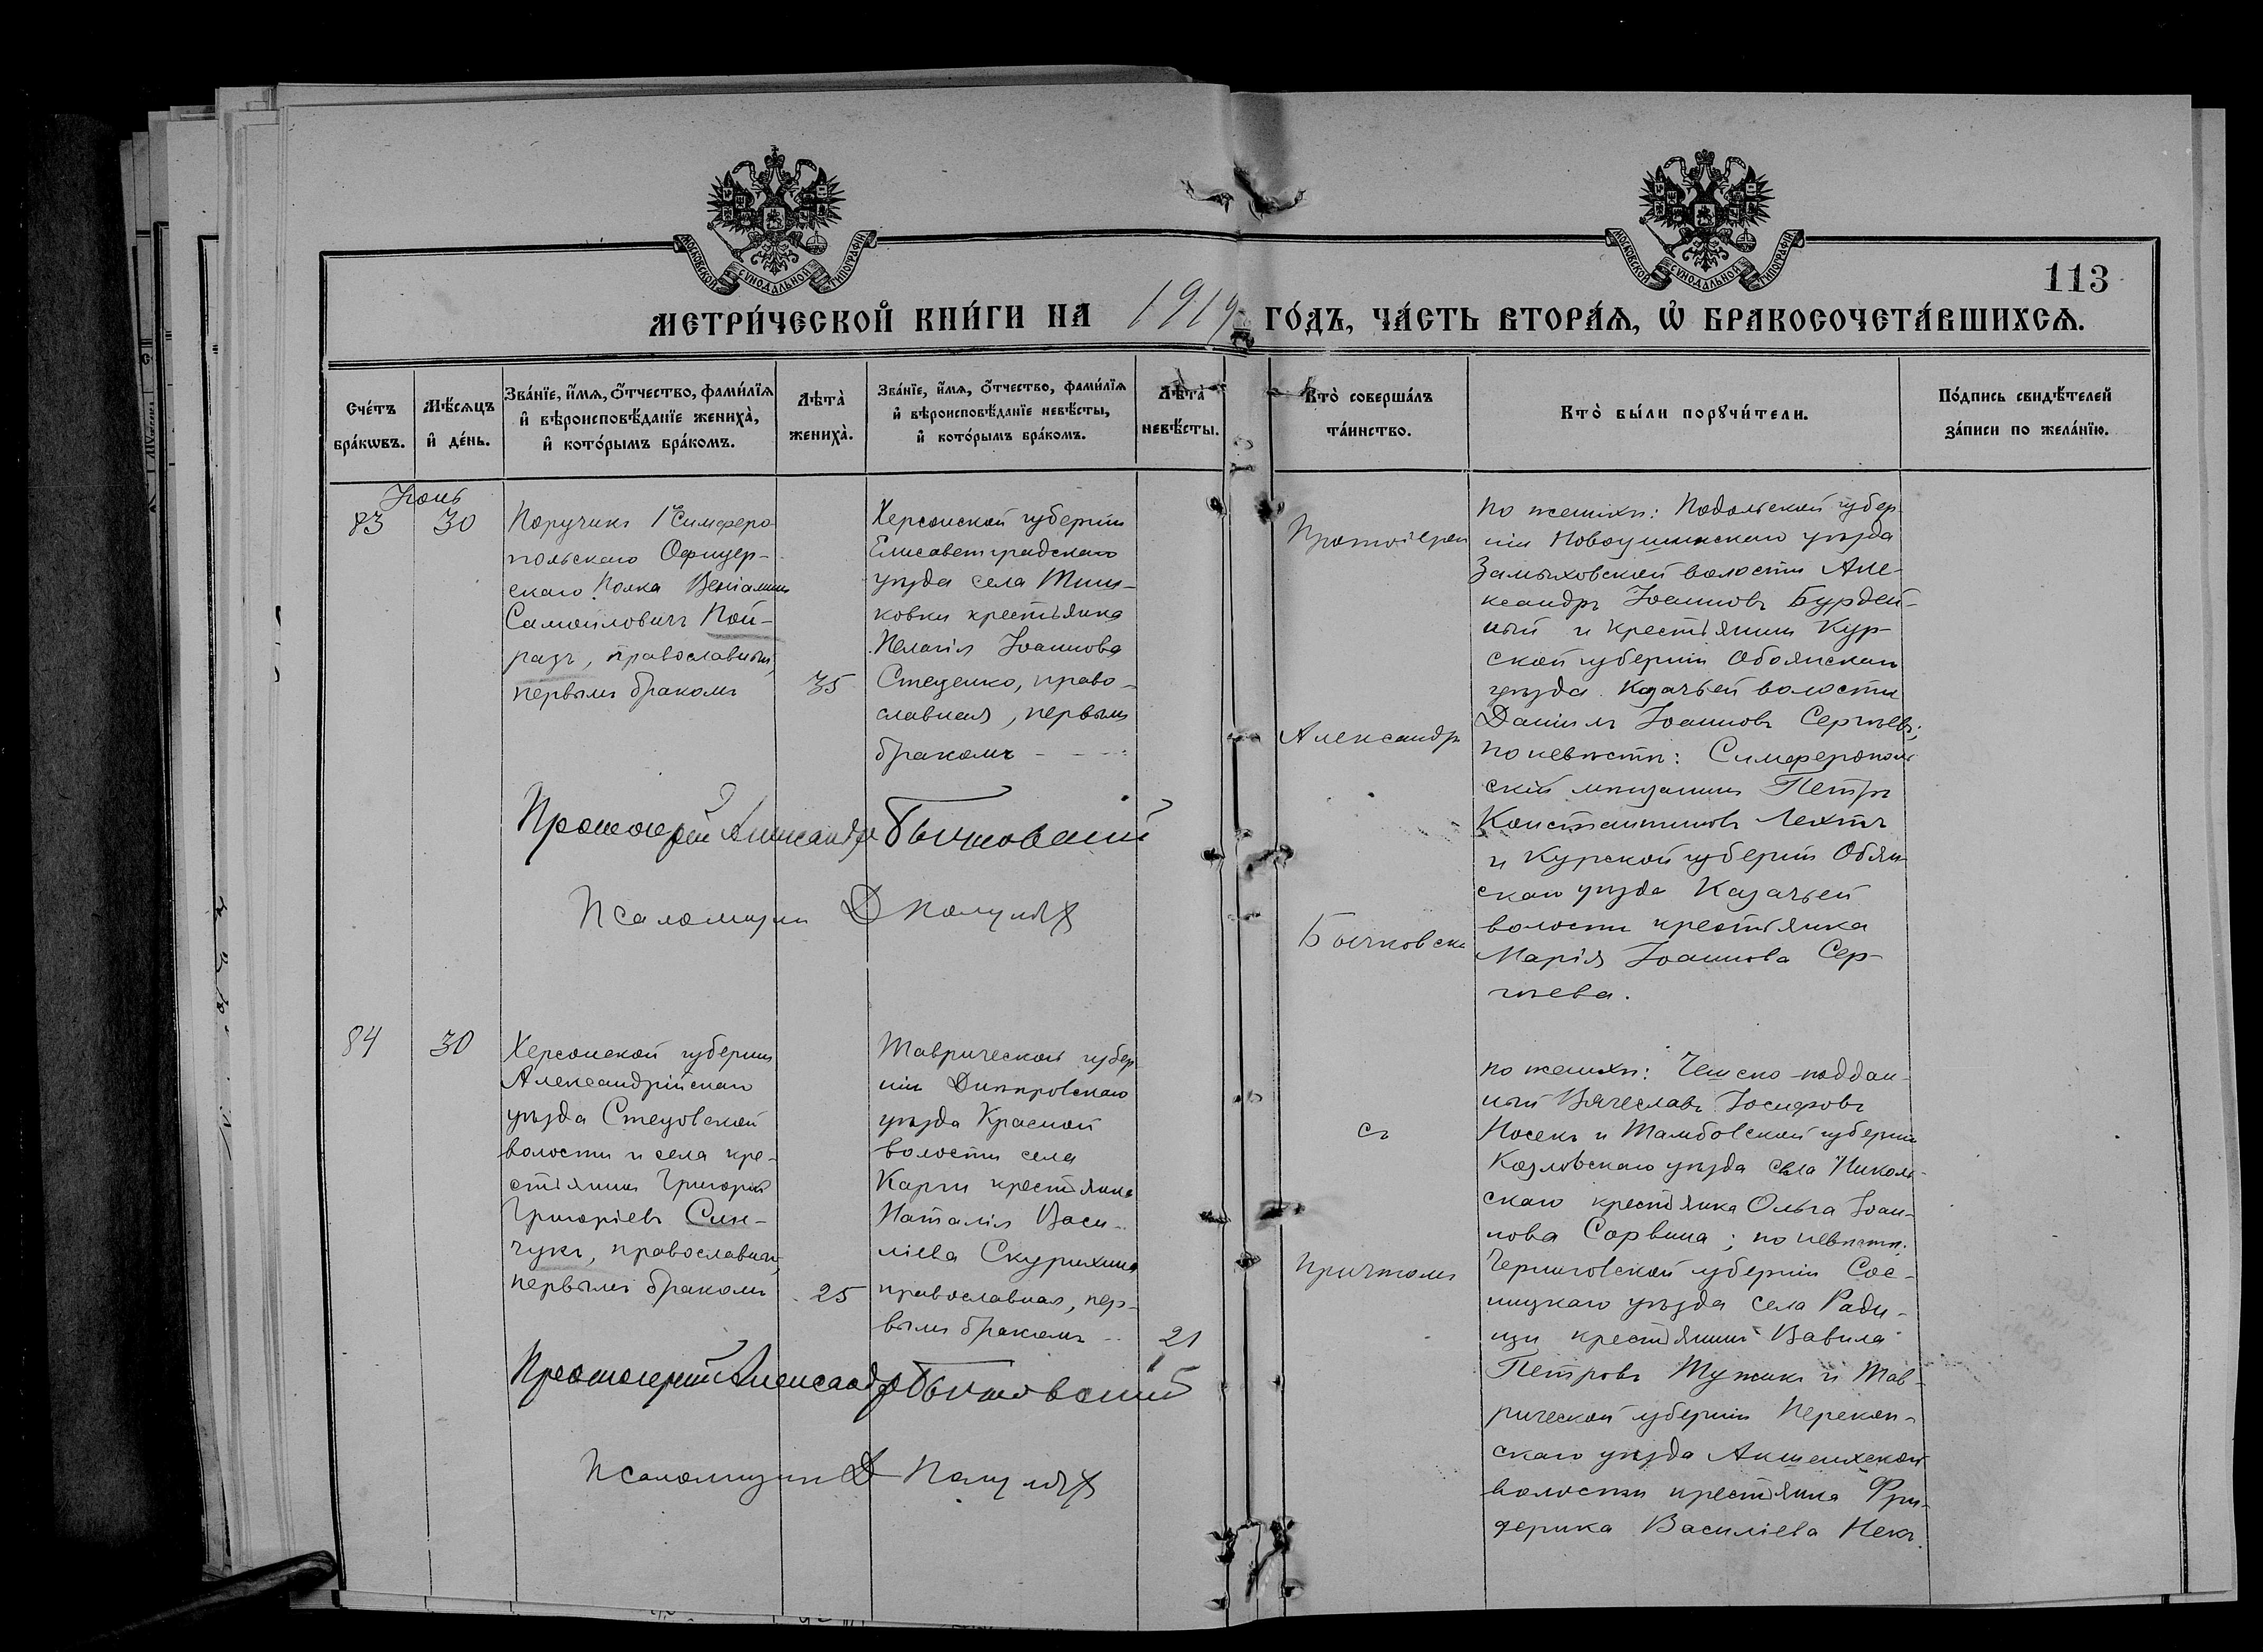 МОСКОВСКОЙ СУНОДАЛЬНОЙ ТИПОГРАФІИ
МОСКОВСКОЙ СУНОДАЛЬНОЙ ТИПОГРАФІИ
113
МЕТРИ́ЧЕСКОЙ КНИ́ГИ НА 1919 ГО́ДЪ, ЧА́СТЬ ВТОРА́Ѧ, Ѡ҆ БРАКОСОЧЕТА́ВШИХСѦ.
Сче́тъ бра́кѡвъ.
Мѣ́сѧцъ и҆ де́нь.
Зва́нїе, и҆́мѧ, ѻ҆́тчество, фами́лїѧ и҆ вѣроисповѣ́данїе жениха̀, и҆ кото́рымъ бра́комъ.
Лѣта̀ жениха̀.
Зва́нїе, и҆́мѧ, ѻ҆́тчество, фами́лїѧ и҆ вѣроисповѣ́данїе невѣ́сты, и҆ кото́рымъ бра́комъ.
Лѣта̀ невѣ́сты.
Кто̀ соверша́лъ та́инство.
Кто̀ бы́ли порꙋчи́тели.
По́дпись свидѣ́телей за́писи по жела́нїю.
Іюнь
83
30
Поручикъ 1го Симферо
польскаго Офицер-
скаго Полка Веніаминъ
Самойловичъ Пой-
разъ, православный,
первымъ бракомъ
35
Херсонской губерніи
Елисаветградскаго
уѣзда села Тиш-
ковки крестьянка
Пелагія Іоаннова
Стеценко, право-
славная, первымъ
бракомъ
Протоіерей
Александръ
Бычковскій
съ
причтомъ
по женихѣ: Подольской губер-
ніи Новоушинскаго уѣзда
Замѣховской волости Але-
ксандръ Іоанновъ Бурдей-
ный и крестьянинъ Кур-
ской губерніи Обоянскаго
уѣзда Казачьей волости
Даніилъ Іоанновъ Сергѣевъ;
по невѣстѣ: Симферополь
скій мѣщанинъ Петръ
Константиновъ Лехтъ
и Курской губерніи Обоян-
скаго уѣзда Казачьей
волости крестьянка
Марія Іоаннова Сер-
гѣева.
Протоіерей Александръ Бычковскій
Псаломщикъ Д
84
30
Херсонской губерніи
Александрійскаго
уѣзда Стецовской
волости и села кре-
стьянинъ Григорій
Григоріевъ Син-
чукъ, православный,
первымъ бракомъ
25
Таврической губер
ніи Днѣпровскаго
уѣзда Красной
волости села
Карги крестьянка
Наталія Васи-
ліева Скурихина
православная, пер-
вымъ бракомъ
21
по женихѣ: Чешско-поддан-
ный Вячеславъ Іосифовъ
Носекъ и Тамбовской губерніи
Козловскаго уѣзда села Николь-
скаго крестьянка Ольга Іоан-
нова Сорвина; по невѣстѣ:
Черниговской губерніи Сос-
ницкаго уѣзда села Ради-
чи крестьянинъ Вавила
Петровъ Тужикъ и Тав-
рической губерніи Перекоп-
скаго уѣзда Акшеихской
волости крестьянка Фри-
дерика Василіева Некъ.
Протоіерей Александръ Бычковскій
Псаломщикъ Д